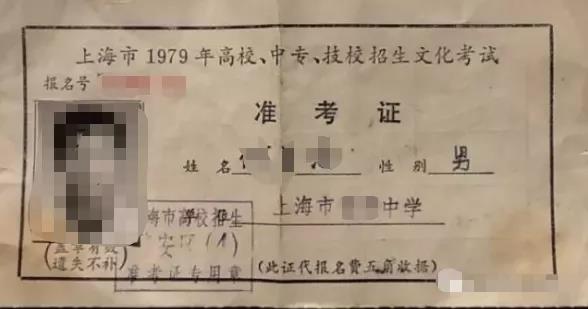 上海市1979年高校、中专、技校招生文化考试
报名号
准考证
姓名 性别 男
上海市 中学
海市高校招生
(1)
准考证专用章
盖章有效
遗失不补
(此证代报名费五角收据)